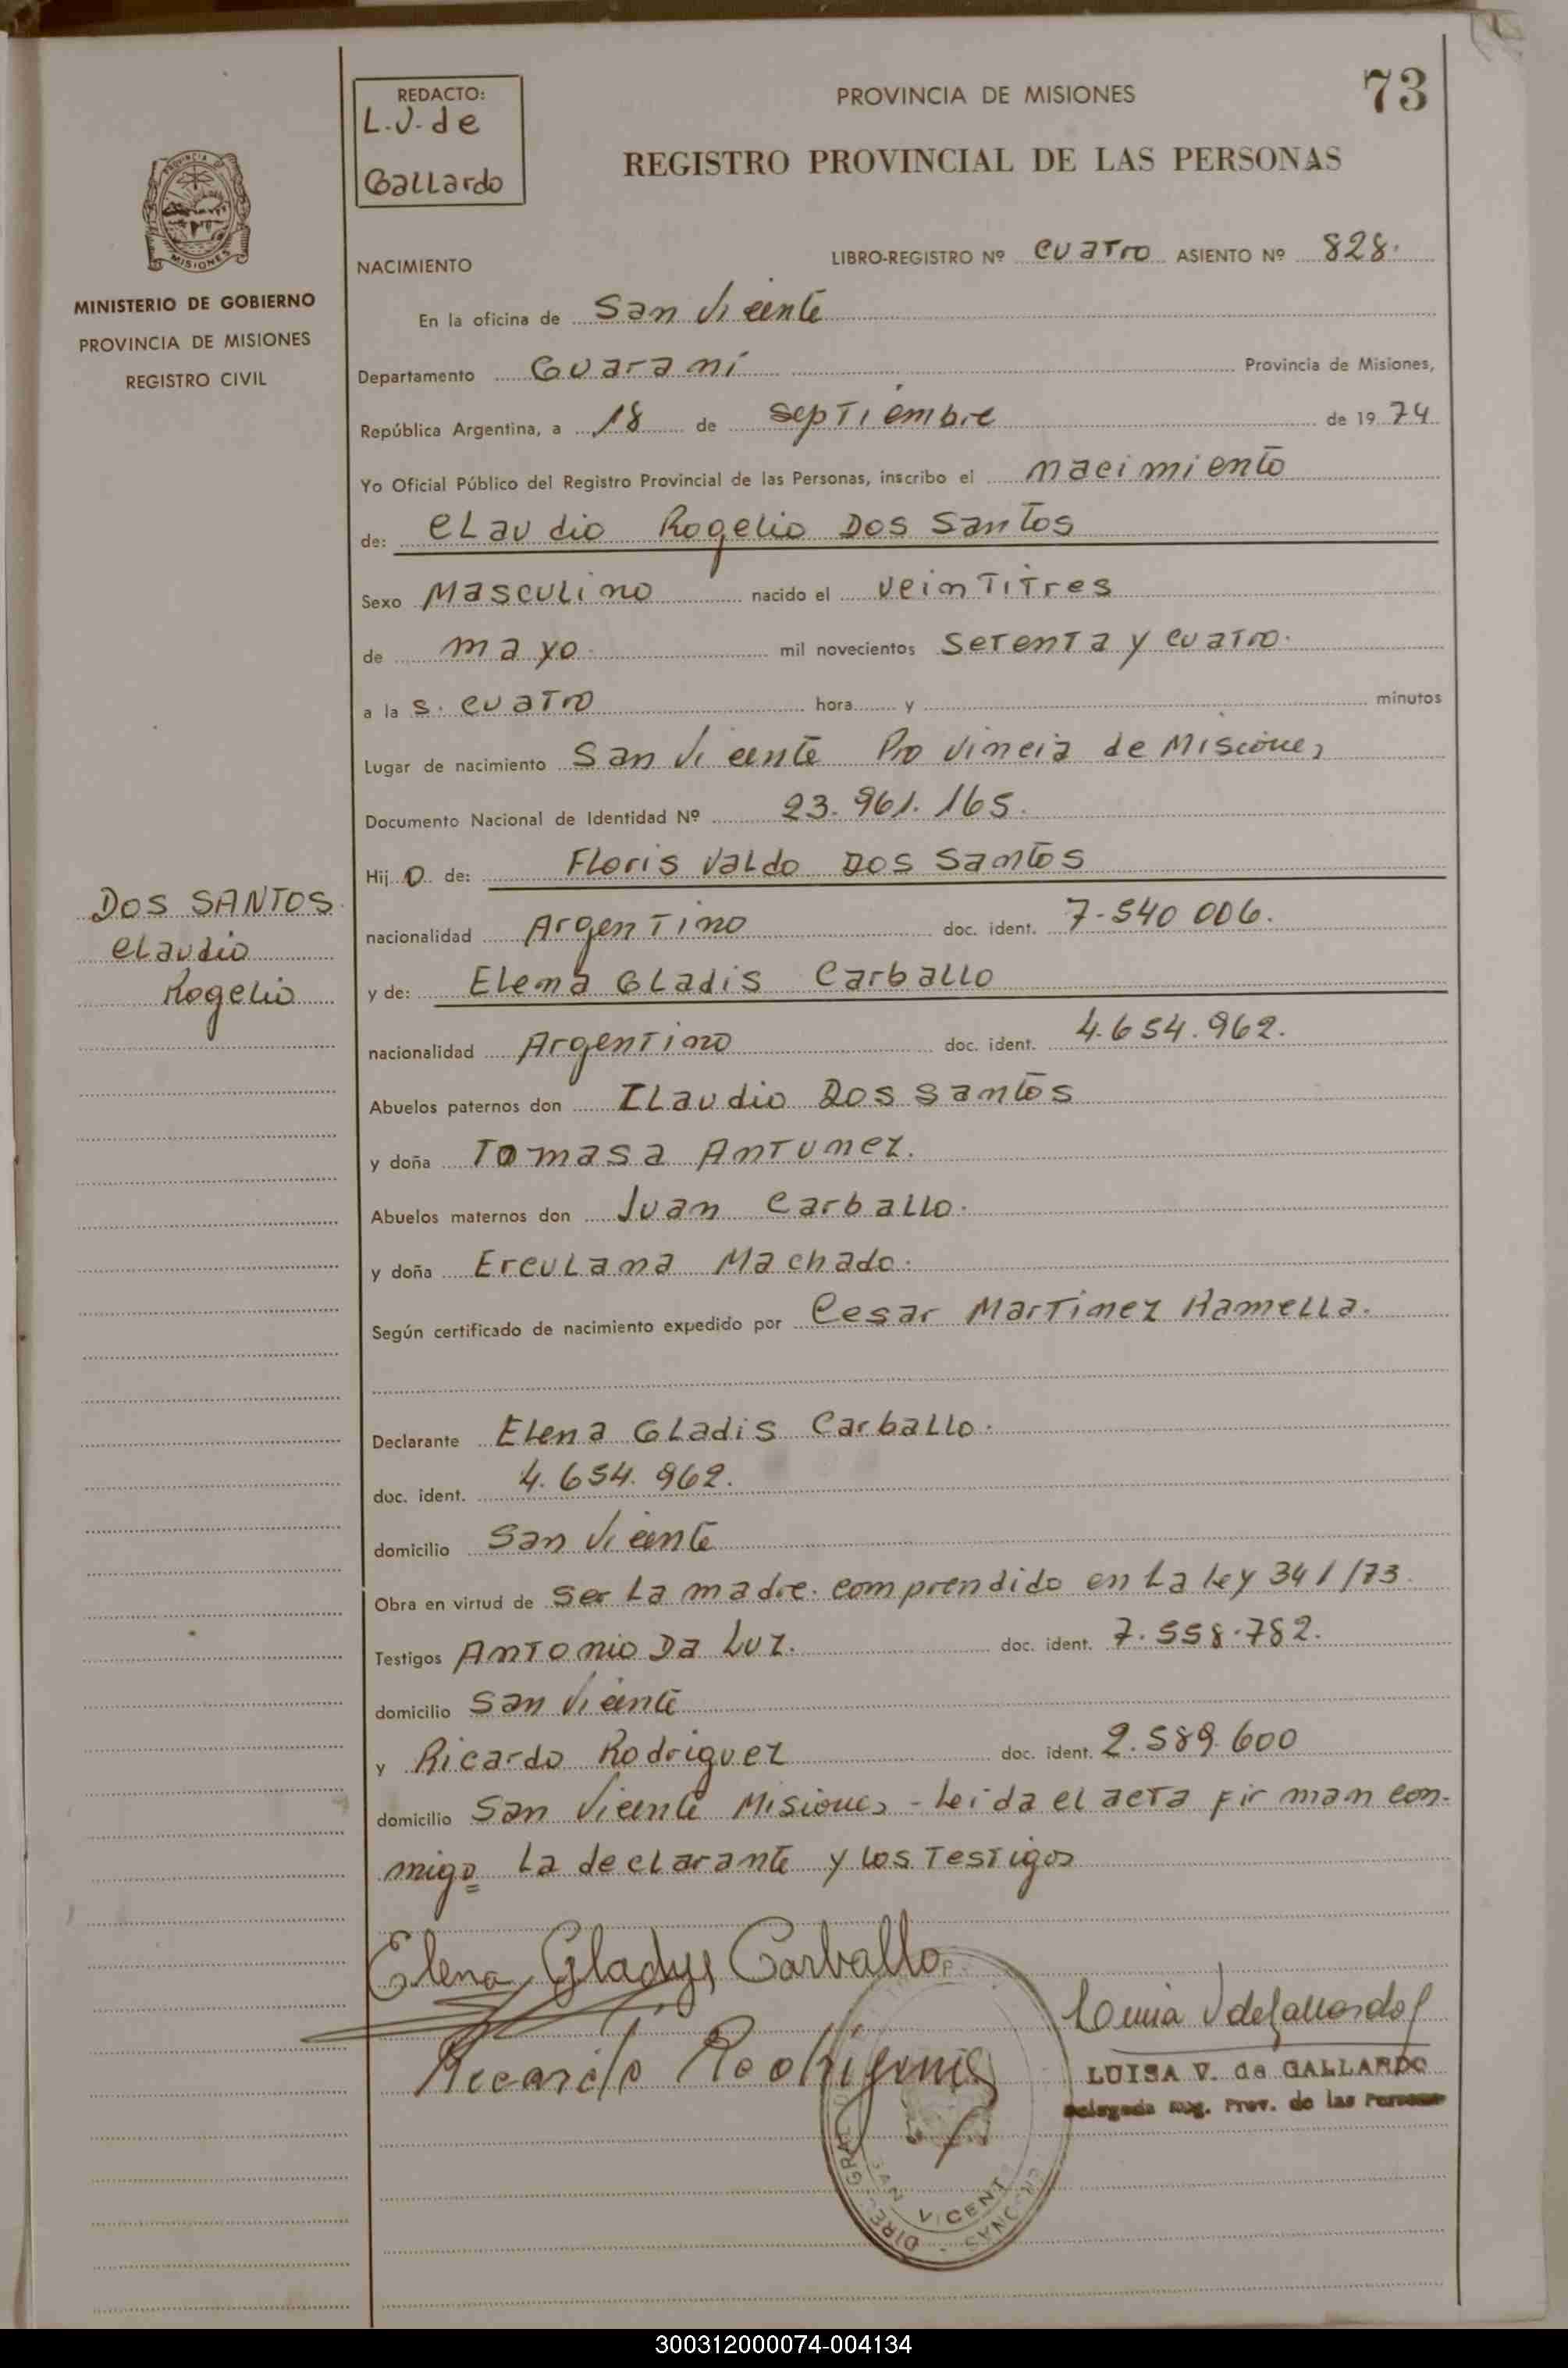 73
REDACTO:
L.V. de
Gallardo
PROVINCIA DE MISIONES
REGISTRO PROVINCIAL DE LAS PERSONAS
PROVINCIA DE
MISIONES
MINISTERIO DE GOBIERNO
PROVINCIA DE MISIONES
REGISTRO CIVIL
NACIMIENTO
LIBRO-REGISTRO Nº cuatro ASIENTO Nº 828.
En la oficina de San Vicente
Departamento Guaraní Provincia de Misiones,
República Argentina, a 18 de septiembre de 1974
Yo Oficial Público del Registro Provincial de las Personas, inscribo el nacimiento
de: Claudio Rogelio Dos Santos
Sexo Masculino nacido el veintitres
de mayo. mil novecientos setenta y cuatro.
a la s. cuatro hora y minutos
Lugar de nacimiento San Vicente Provincia de Misiones
Documento Nacional de Identidad Nº 23.961.165.
Hijo de: Floris Valdo Dos Santos
nacionalidad Argentino doc. ident. 7.540 006.
y de: Elena Gladis Carballo
nacionalidad Argentino doc. ident. 4.654.962.
DOS SANTOS
Claudio
Rogelio
Abuelos paternos don Claudio Dos Santos
y doña Tomasa Antunez.
Abuelos maternos don Juan Carballo.
y doña Erculana Machado.
Según certificado de nacimiento expedido por Cesar Martinez Ramella.
Declarante Elena Gladis Carballo.
doc. ident. 4.654.962.
domicilio San Vicente
Obra en virtud de ser la madre. comprendido en la ley 341/73.
Testigos Antonio Da Luz. doc. ident. 7.558.782.
domicilio San Vicente
y Ricardo Rodriguez doc. ident. 2.589.600
domicilio San Vicente Misiones - Leida el acta firman con-
migo la declarante y los testigos
Elena Gladys Carballo
Ricardo Rodriguez
LUISA V. de GALLARDO
Delegada Reg. Prov. de las Personas
SAN VICENTE
300312000074-004134